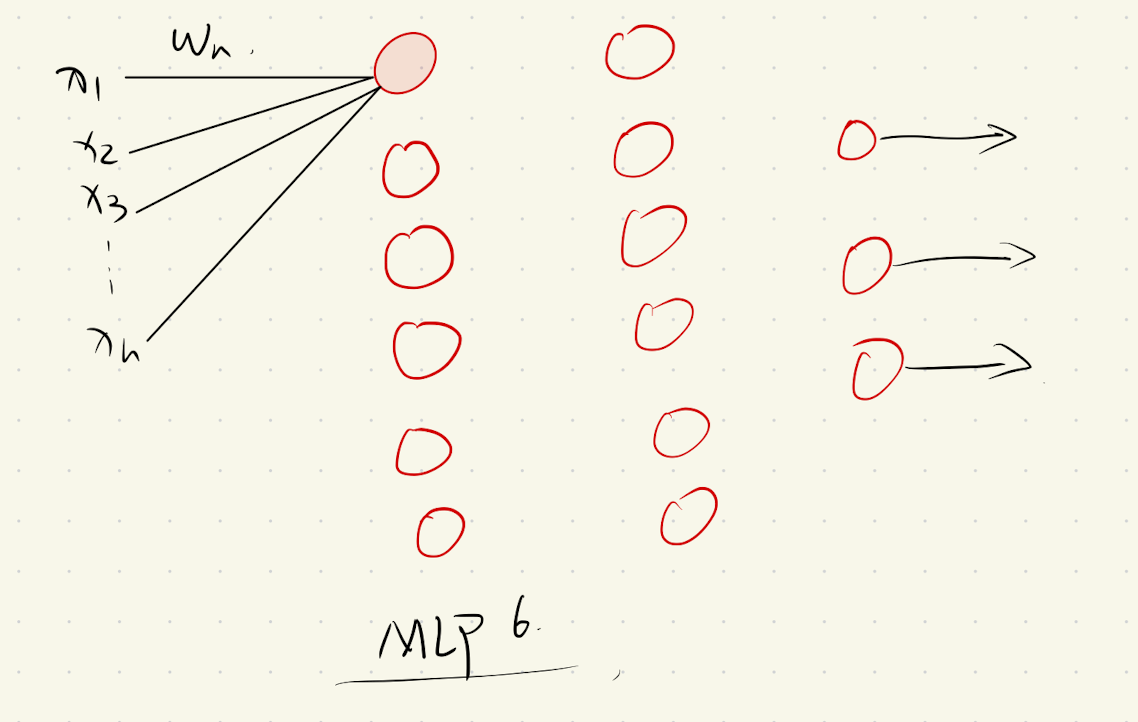 Wn.
x1
x2
x3
xn
MLP 6.